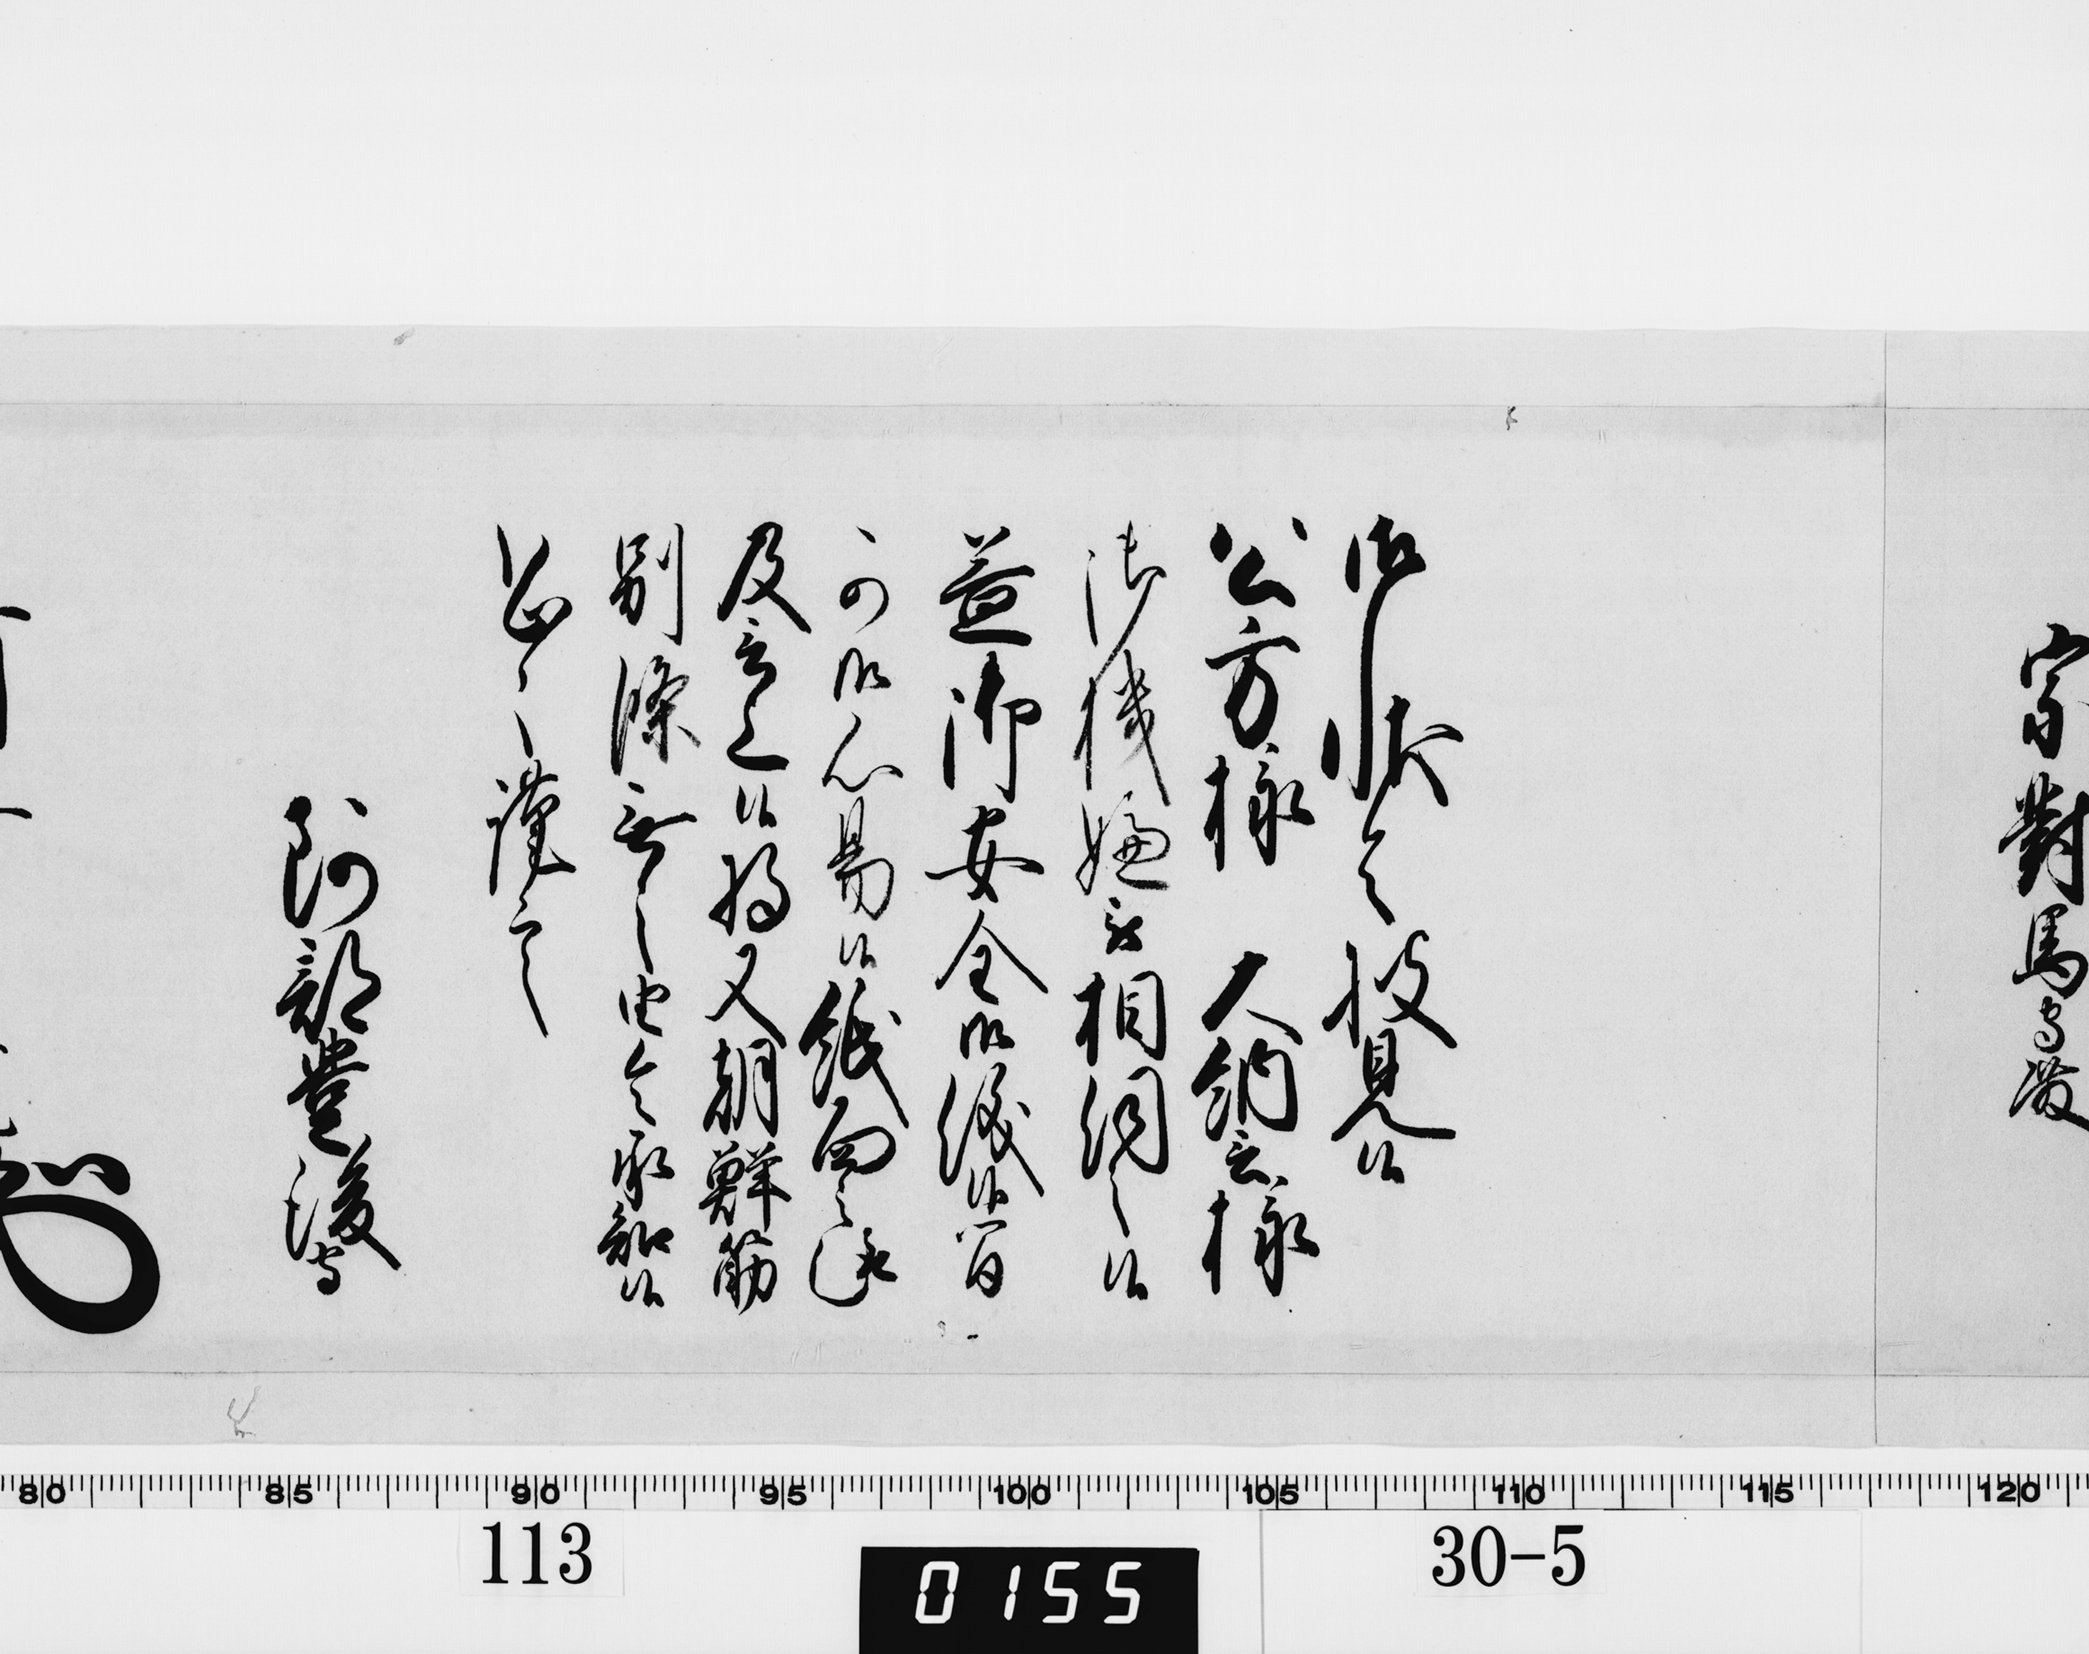 宗對馬守殿
御状令披見候
公方様 大納言様
御機嫌被相伺之候
益御安全被成候間
可御心易候紙面之趣
及言上候将又朝鮮筋
別條無之由令承知候
恐々謹言
阿部豊後守
80 85 90 95 100 105 110 115 120
113
0155
30-5